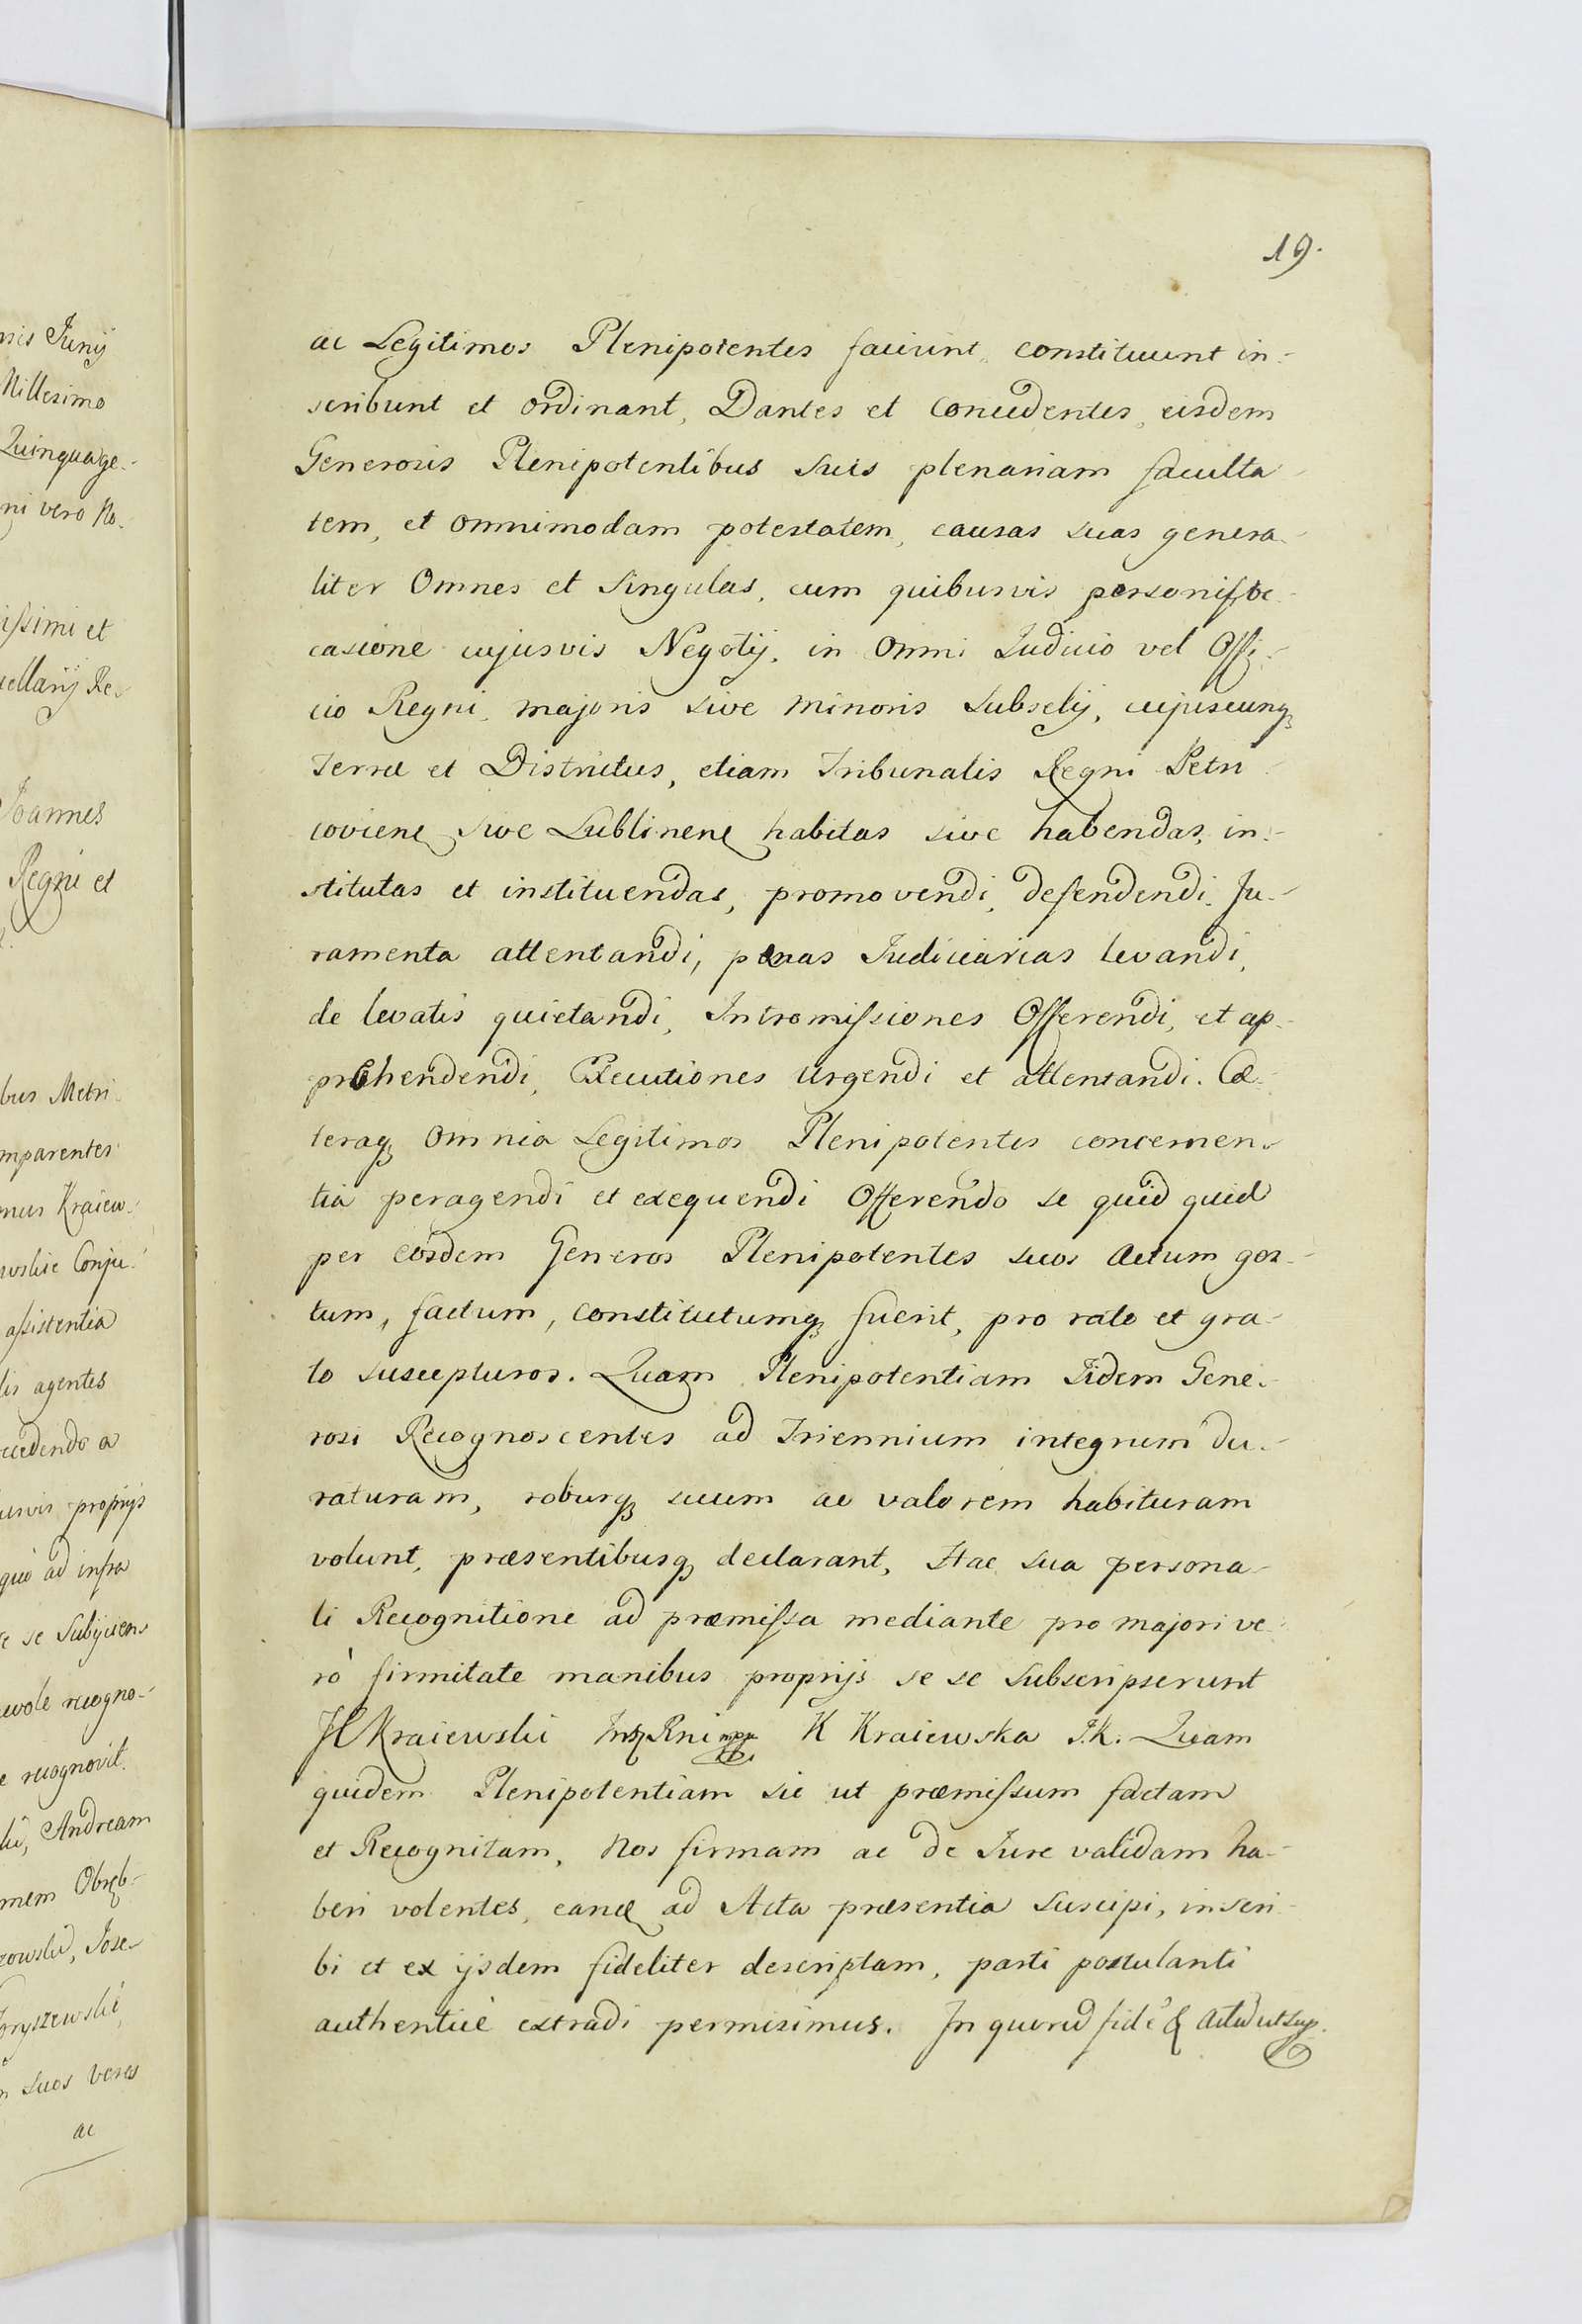 nsis Junij
Millesimo
Quinquage-
ni vero No-
issimi et
cellarij Re-
Joannes
Regni et
bus Metri-
mparentes
mus Kraiew-
wskie Conju-
assistentia
lis agentes
cedendo a
usvis proprijs
quò ad infra
se Subijcien-
recogno-
recognovit.
Andream
mem Obręb-
zowski, Jose-
Gryszewski
suos veros
ac
19.
ac Legitimos Plenipotentes faciunt, constituunt in-
scribunt et Ordinant, Dantes et Concedentes, eisdem
Generosis Plenipotentibus Suis plenariam faculta-
tem, et omnimodam potestatem, causas suas genera-
liter Omnes et Singulas, cum quibusvis personis, oc-
casione cujusvis Negotij, in Omni Judicio vel Offi-
cio Regni, majoris sive minoris Subselij, cujuscunq
Terræ et Districtus, etiam Tribunalis Regni Petri-
coviene sive Lublinene habitas sive habendas, in-
stitutas et instituendas, promovendi, defendendi, Ju-
ramenta attentandi, pænas Judiciarias levandi,
de levatis quietandi, Intromissiones Offerendi, et ap-
prehendendi, Executiones Urgendi et attentandi. Cæ-
teraq Omnia Legitimos Plenipotentes concernen-
tia peragendi et exequendi Offerendo se quid quid
per eosdem Generos Plenipotentes suos Actum ges-
tum, factum, constitutumq fuerit, pro rato et gra-
to suscepturos. Quam Plenipotentiam Iidem Gene-
rosi Recognoscentes ad Triennium integrum du-
raturam, roburq suum ac valorem habituram
volunt, præsentibusq declarant, Hac sua persona-
li Recognitione ad præmissa mediante pro majori ve-
rò firmitate manibus proprijs se se subscripserunt
Kraiewski mpp K Kraiewska I.K. Quam
quidem Plenipotentiam sic ut præmissum factam
et Recognitam, Nos firmam ac de Jure validam ha-
beri volentes, eande ad Acta præsentia Suscipi, inscri-
bi et ex ijsdem fideliter descriptam, parti postulanti
authenticè extradi permisimus. In quorū fidē & Actū ut sup.